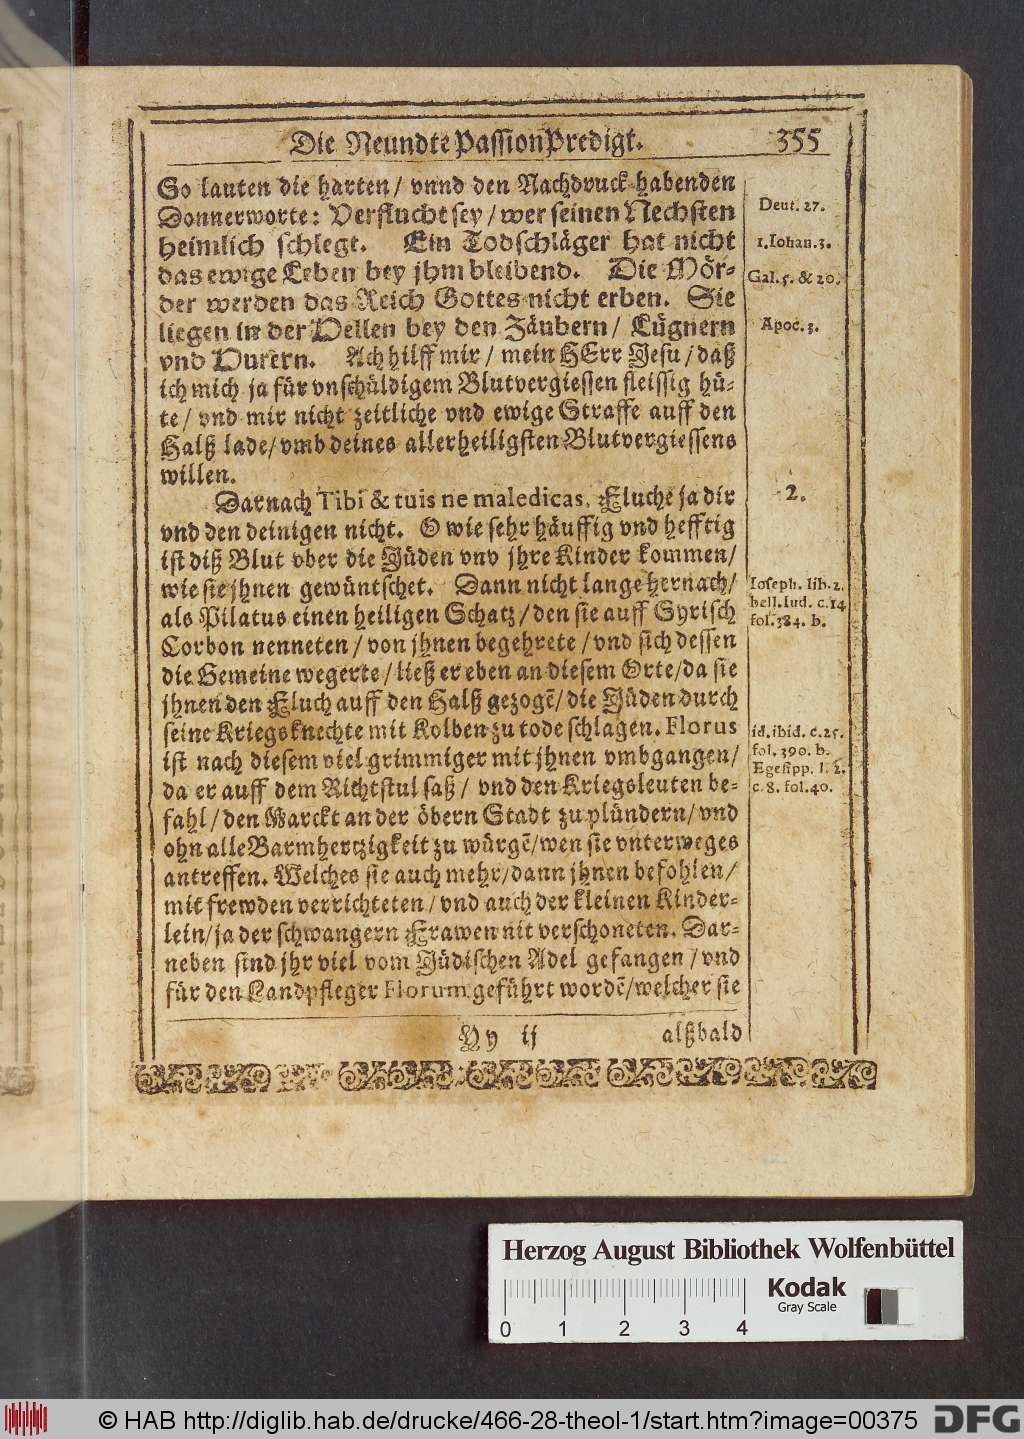 Die Neundte Passion Predigt. 355
So lauten die harten/ vnnd den Nachdruck habenden
Donnerworte: Verflucht sey/ wer seinen Nechsten
heimlich schlegt. Ein Todschläger hat nicht
das ewige Leben bey jhm bleibend. Die Mör-
der werden das Reich Gottes nicht erben. Sie
liegen in der Hellen bey den Zäubern/ Lügnern
vnd Hurern. Ach hilff mir/ mein HErr Jesu/ daß
ich mich ja für vnschüldigem Blutvergiessen fleissig hü-
te/ vnd mir nicht zeitliche vnd ewige Straffe auff den
Halß lade/ vmb deines allerheiligsten Blutvergiessens
willen.
Darnach Tibi & tuis ne maledicas, Fluche ja dir
vnd den deinigen nicht. O wie sehr häuffig vnd hefftig
ist diß Blut vber die Jüden vnd jhre Kinder kommen/
wie sie jhnen gewüntschet. Dann nicht lange hernach/
als Pilatus einen heiligen Schatz/ den sie auff Syrisch
Corbon nenneten/ von jhnen begehrete/ vnd sich dessen
die Gemeine wegerte/ ließ er eben an diesem Orte/ da sie
jhnen den Fluch auff den Halß gezogē/ die Jüden durch
seine Kriegsknechte mit Kolben zu tode schlagen. Florus
ist nach diesem viel grimmiger mit jhnen vmbgangen/
da er auff dem Richtstul saß/ vnd den Kriegsleuten be-
fahl/ den Marckt an der öbern Stadt zu plündern/ vnd
ohn alle Barmhertzigkeit zu würgē/ wen sie vnterweges
antreffen. Welches sie auch mehr/ dann jhnen befohlen/
mit frewden verrichteten/ vnd auch der kleinen Kinder-
lein/ ja der schwangern Frawen nit verschoneten. Dar-
neben sind jhr viel vom Jüdischen Adel gefangen/ vnd
für den Landpfleger Florum geführt wordē/ welcher sie
Yy ij alßbald
Deut. 27.
1. Iohan. 3.
Gal. 5. & 20.
Apoc. 3.
2.
Ioseph. lib. 2.
bell. Iud. c. 14
fol. 384. b.
id. ibid. c. 25.
fol. 390. b.
Egesipp. l. 2.
c. 8. fol. 40.
Herzog August Bibliothek Wolfenbüttel
Kodak
Gray Scale
0 1 2 3 4
© HAB http://diglib.hab.de/drucke/466-28-theol-1/start.htm?image=00375
DFG